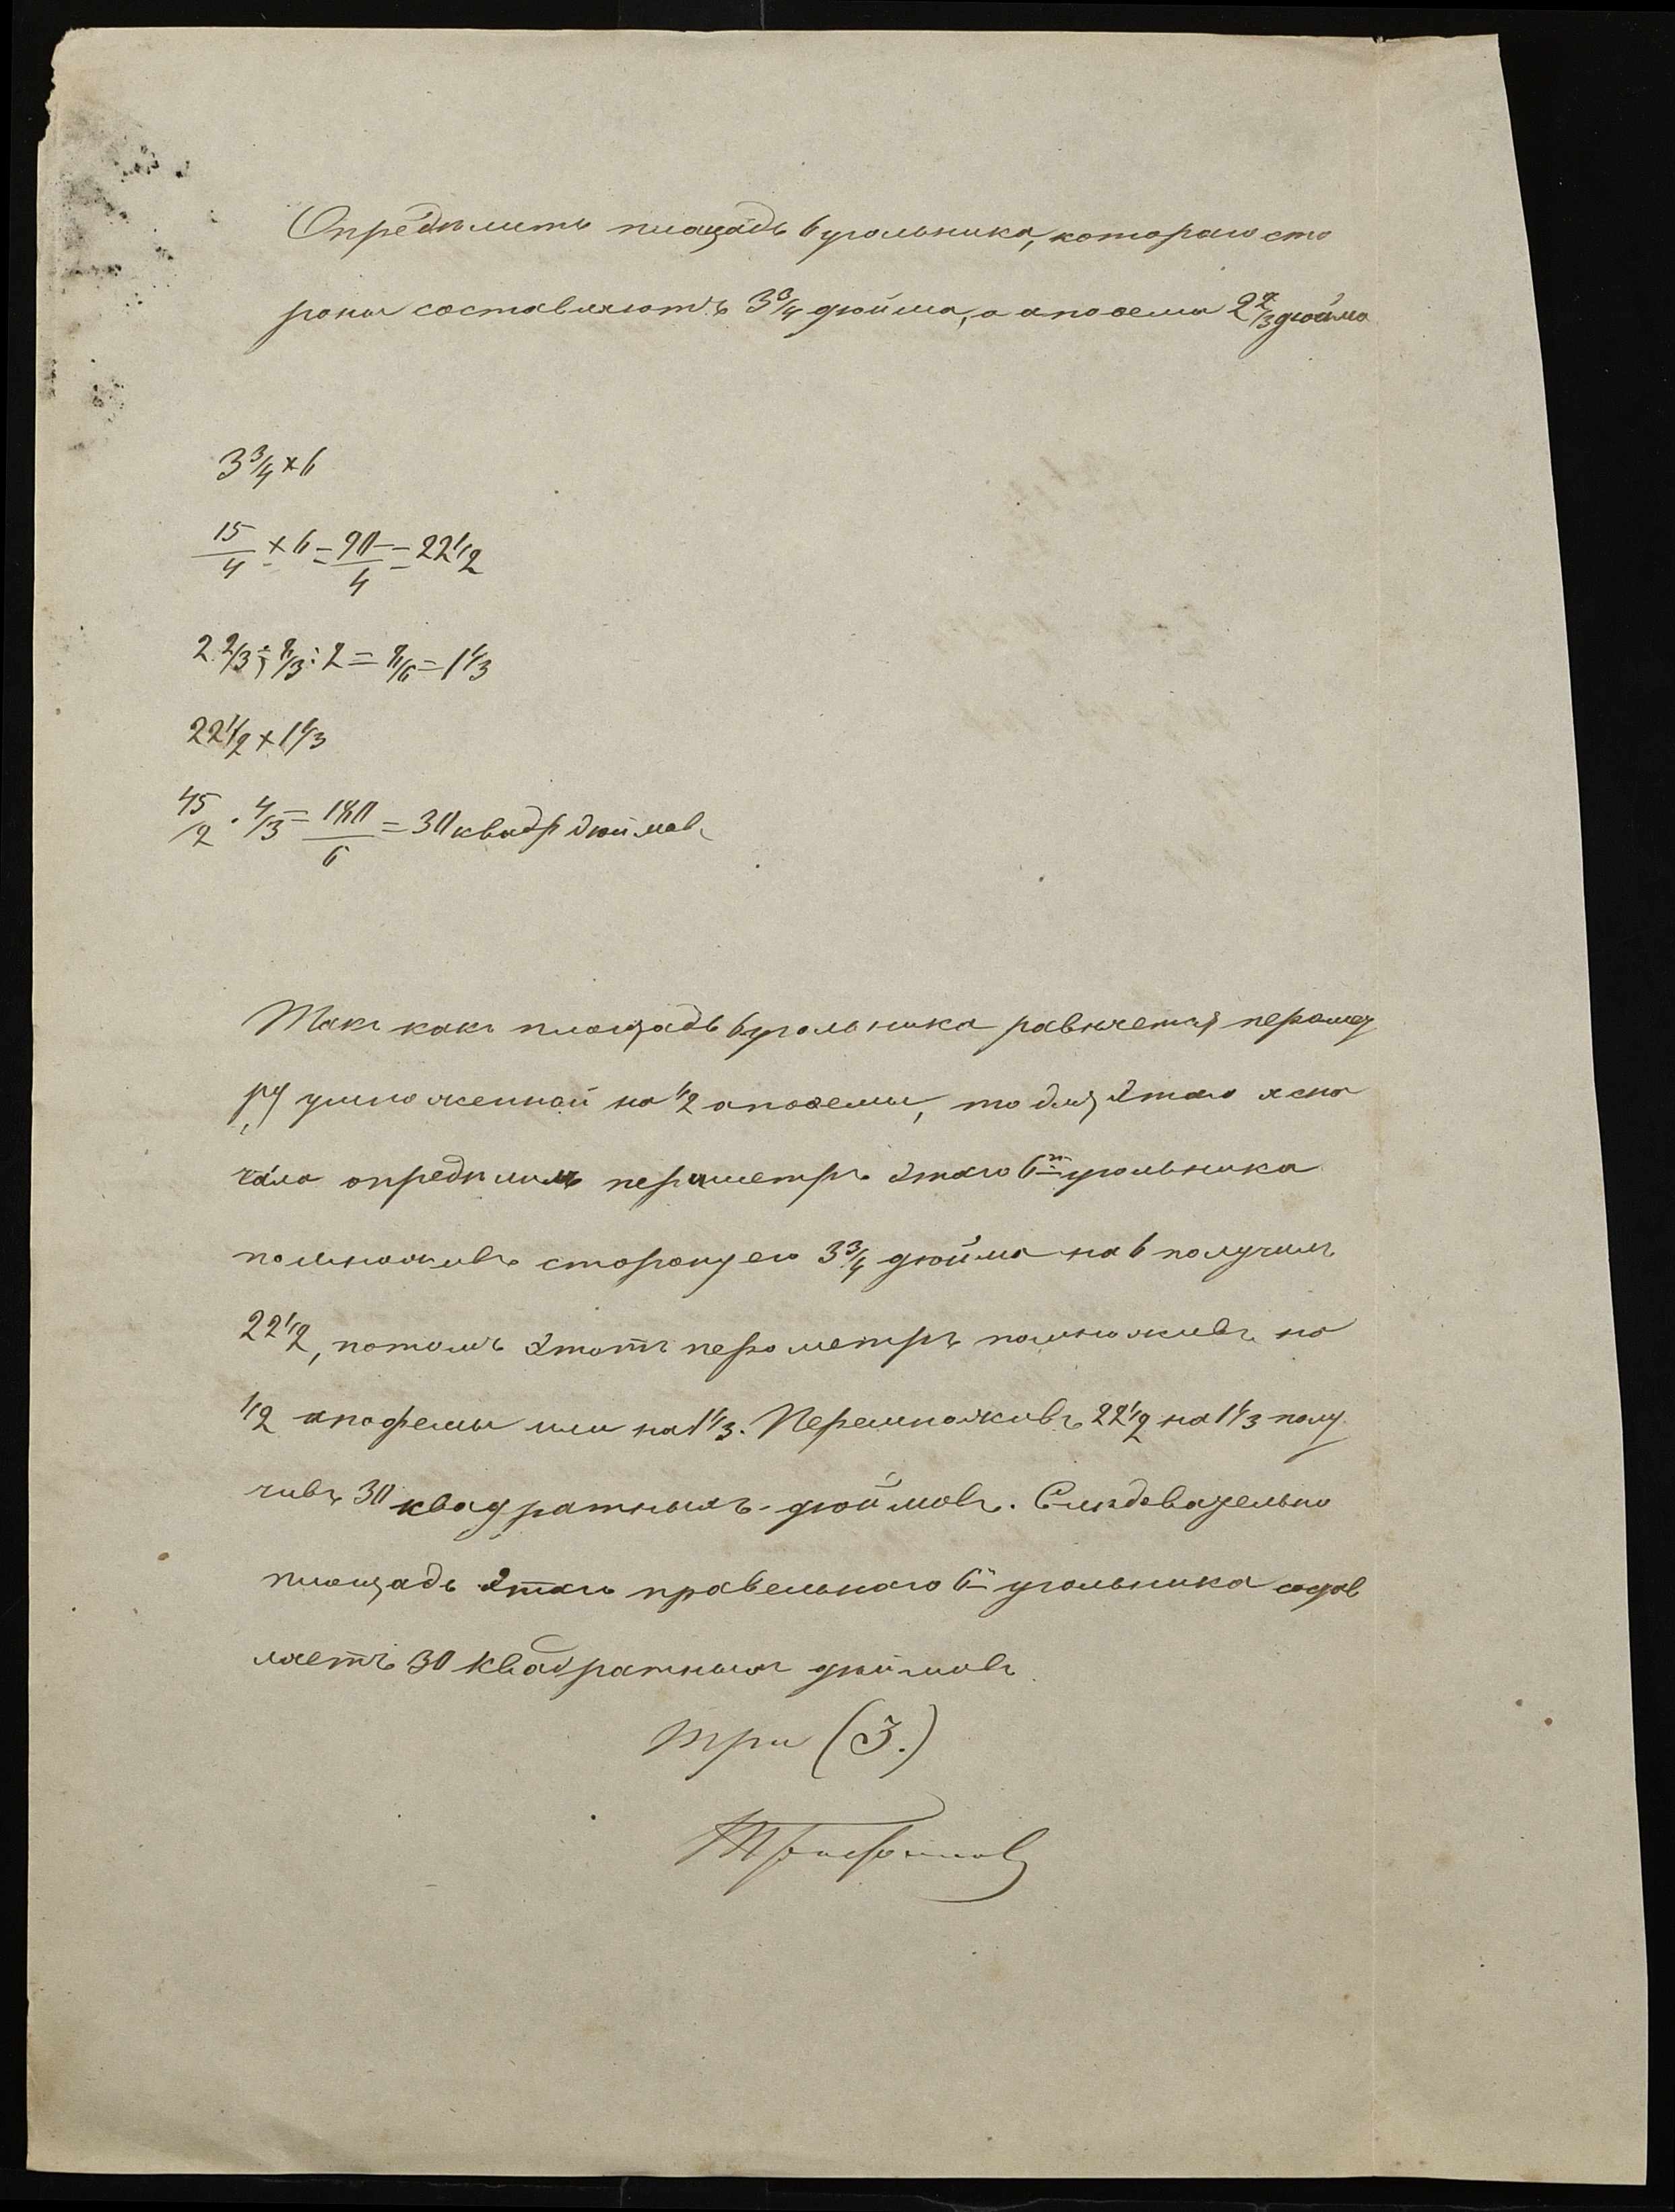 Опредѣлить площадь 6 угольника, котораго сто
роны составляютъ 3 3/4 дюйма, а апоѳема 2 2/3 дюйма
3 3/4 × 6
15/4 × 6 = 90/4 = 22 1/2
2 2/3 = 8/3 : 2 = 8/6 = 1 1/3
22 1/2 × 1 1/3
45/2 · 4/3 = 180/6 = 30 квадр дюймовъ
Такъ какъ площадь 6 угольника равняется перамет
ру умноженной на 1/2 апоѳемы, то для этаго я сна
чала опредѣлилъ пераметръ этаго 6ти угольника
помноживъ сторону его 3 3/4 дюйма на 6 получилъ
22 1/2, потомъ этотъ пераметръ помноживъ на
1/2 апофемы или на 1 1/3. Перемноживъ 22 1/2 на 1 1/3 полу
чивъ 30 квадратныхъ дюймовъ. Слѣдовательно
площадь этаго правельнаго 6ти угольника состав
ляетъ 30 квадратныхъ дюймовъ
три (3.)